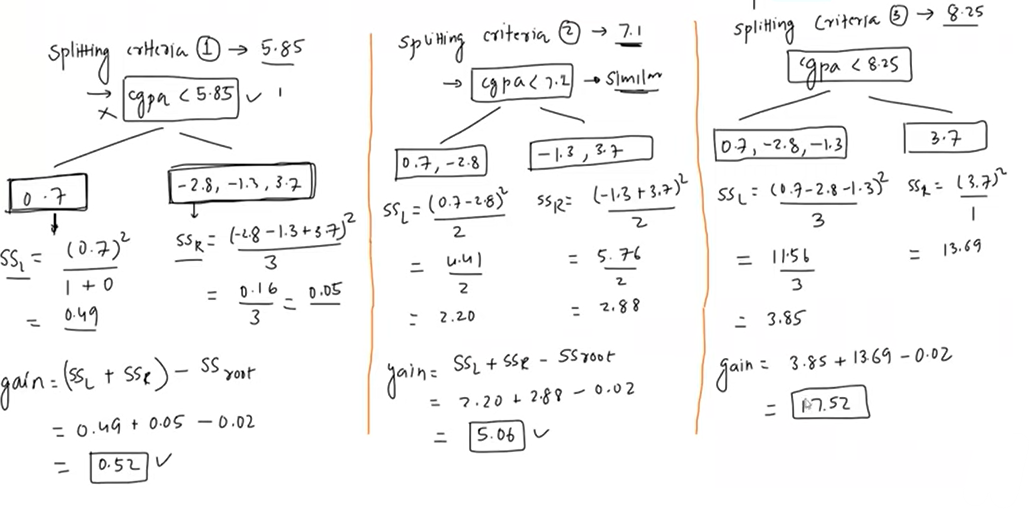 Splitting criteria ① → 5.85
→ cgpa < 5.85 ✓
×
0.7
-2.8, -1.3, 3.7
SS_L = (0.7)² / 1 + 0
= 0.49
SS_R = (-2.8 - 1.3 + 3.7)² / 3
= 0.16 / 3 = 0.05
gain = (SS_L + SS_R) - SS root
= 0.49 + 0.05 - 0.02
= 0.52 ✓
Splitting criteria ② → 7.1
→ cgpa < 7.2 → Similar
0.7, -2.8
-1.3, 3.7
SS_L = (0.7 - 2.8)² / 2
= 4.41 / 2
= 2.20
SS_R = (-1.3 + 3.7)² / 2
= 5.76 / 2
= 2.88
gain = SS_L + SS_R - SS root
= 2.20 + 2.88 - 0.02
= 5.06 ✓
Splitting Criteria ③ → 8.25
cgpa < 8.25
0.7, -2.8, -1.3
3.7
SS_L = (0.7 - 2.8 - 1.3)² / 3
= 11.56 / 3
= 3.85
SS_R = (3.7)² / 1
= 13.69
gain = 3.85 + 13.69 - 0.02
= 17.52